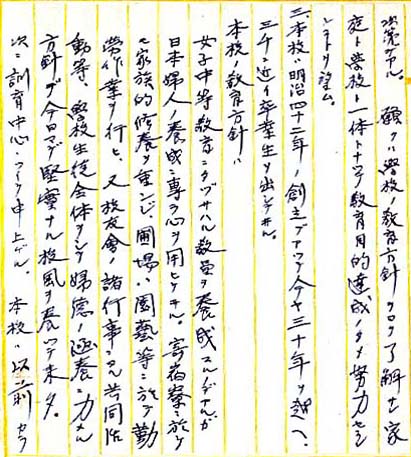 次第デアル。願クハ学校ノ教育方針ヲヨク了解セラレ家
庭ト学校ト一体トナツテ教育目的達成ノタメ努力セラレ
ンコトヲ望ム。
三、本校ハ明治四十二年ノ創立デアツテ今ヤ三十年ヲ越ヘ、
三千ニ近イ卒業生ヲ出シテヰル。
本校ノ教育方針ハ
女子中等教育ニタヅサハル教員ヲ養成スルノデアルガ
日本婦人ノ養成ニ専ラ心ヲ用ヒテヰル。寄宿寮ニ於テ
ハ家族的修養ヲ重ンジ、圃場ハ園藝等ニ於テ勤
労作業ヲ行ヒ、又校友會ノ諸行事ニハ共同作
動等、學校生徒全体ヲシテ婦徳ノ涵養ニ力メル
方針ガ今日マデ堅實ナル校風ヲ養ツテ来タ。
次ニ訓育中心ニツイテ申上ゲル。本校ハ以前カラ